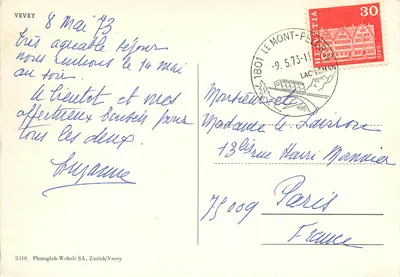 VEVEY
8 mai 73
Très agréable séjour
nous rentrons le 14 mai
au soir.
A bientôt et mes
affectueux baisers pour
tous les deux.
Suzanne
2416 Photoglob-Wehrli SA, Zurich/Vevey
1801 LE MONT-PÈLERIN
-9.5.73-1
LAC LÉMAN
HELVETIA
30
Monsieur et
Madame Le
13 rue Henri Monnier
75009 Paris
France